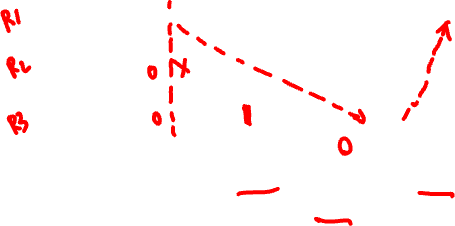 R1
R2 0 X
R3 0 1
0